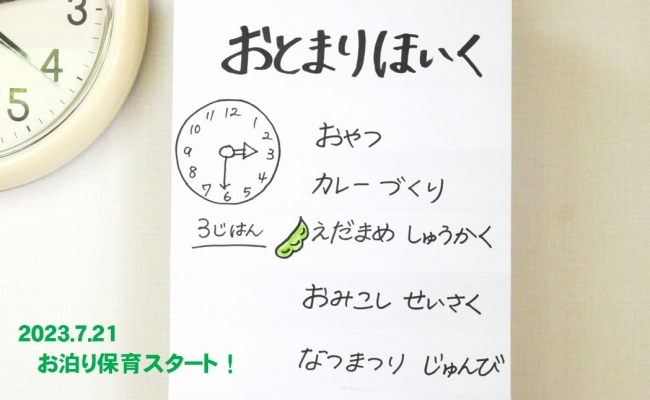 おとまりほいく
12
11 1
10 2
9 3
8 4
7 6 5
3じはん
おやつ
カレーづくり
えだまめ しゅうかく
おみこし せいさく
なつまつり じゅんび
3
4
5
2023.7.21
お泊り保育スタート！